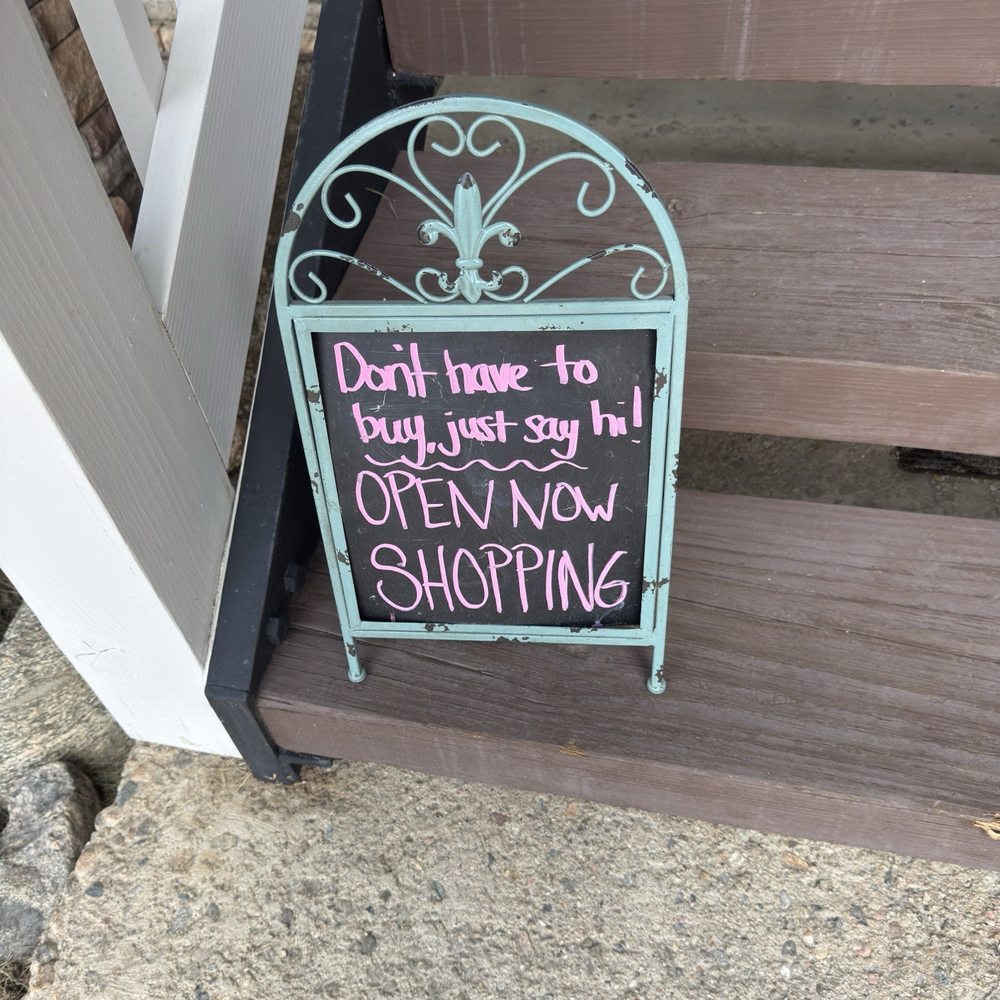 Don't have to
buy, just say hi!
OPEN NOW
SHOPPING